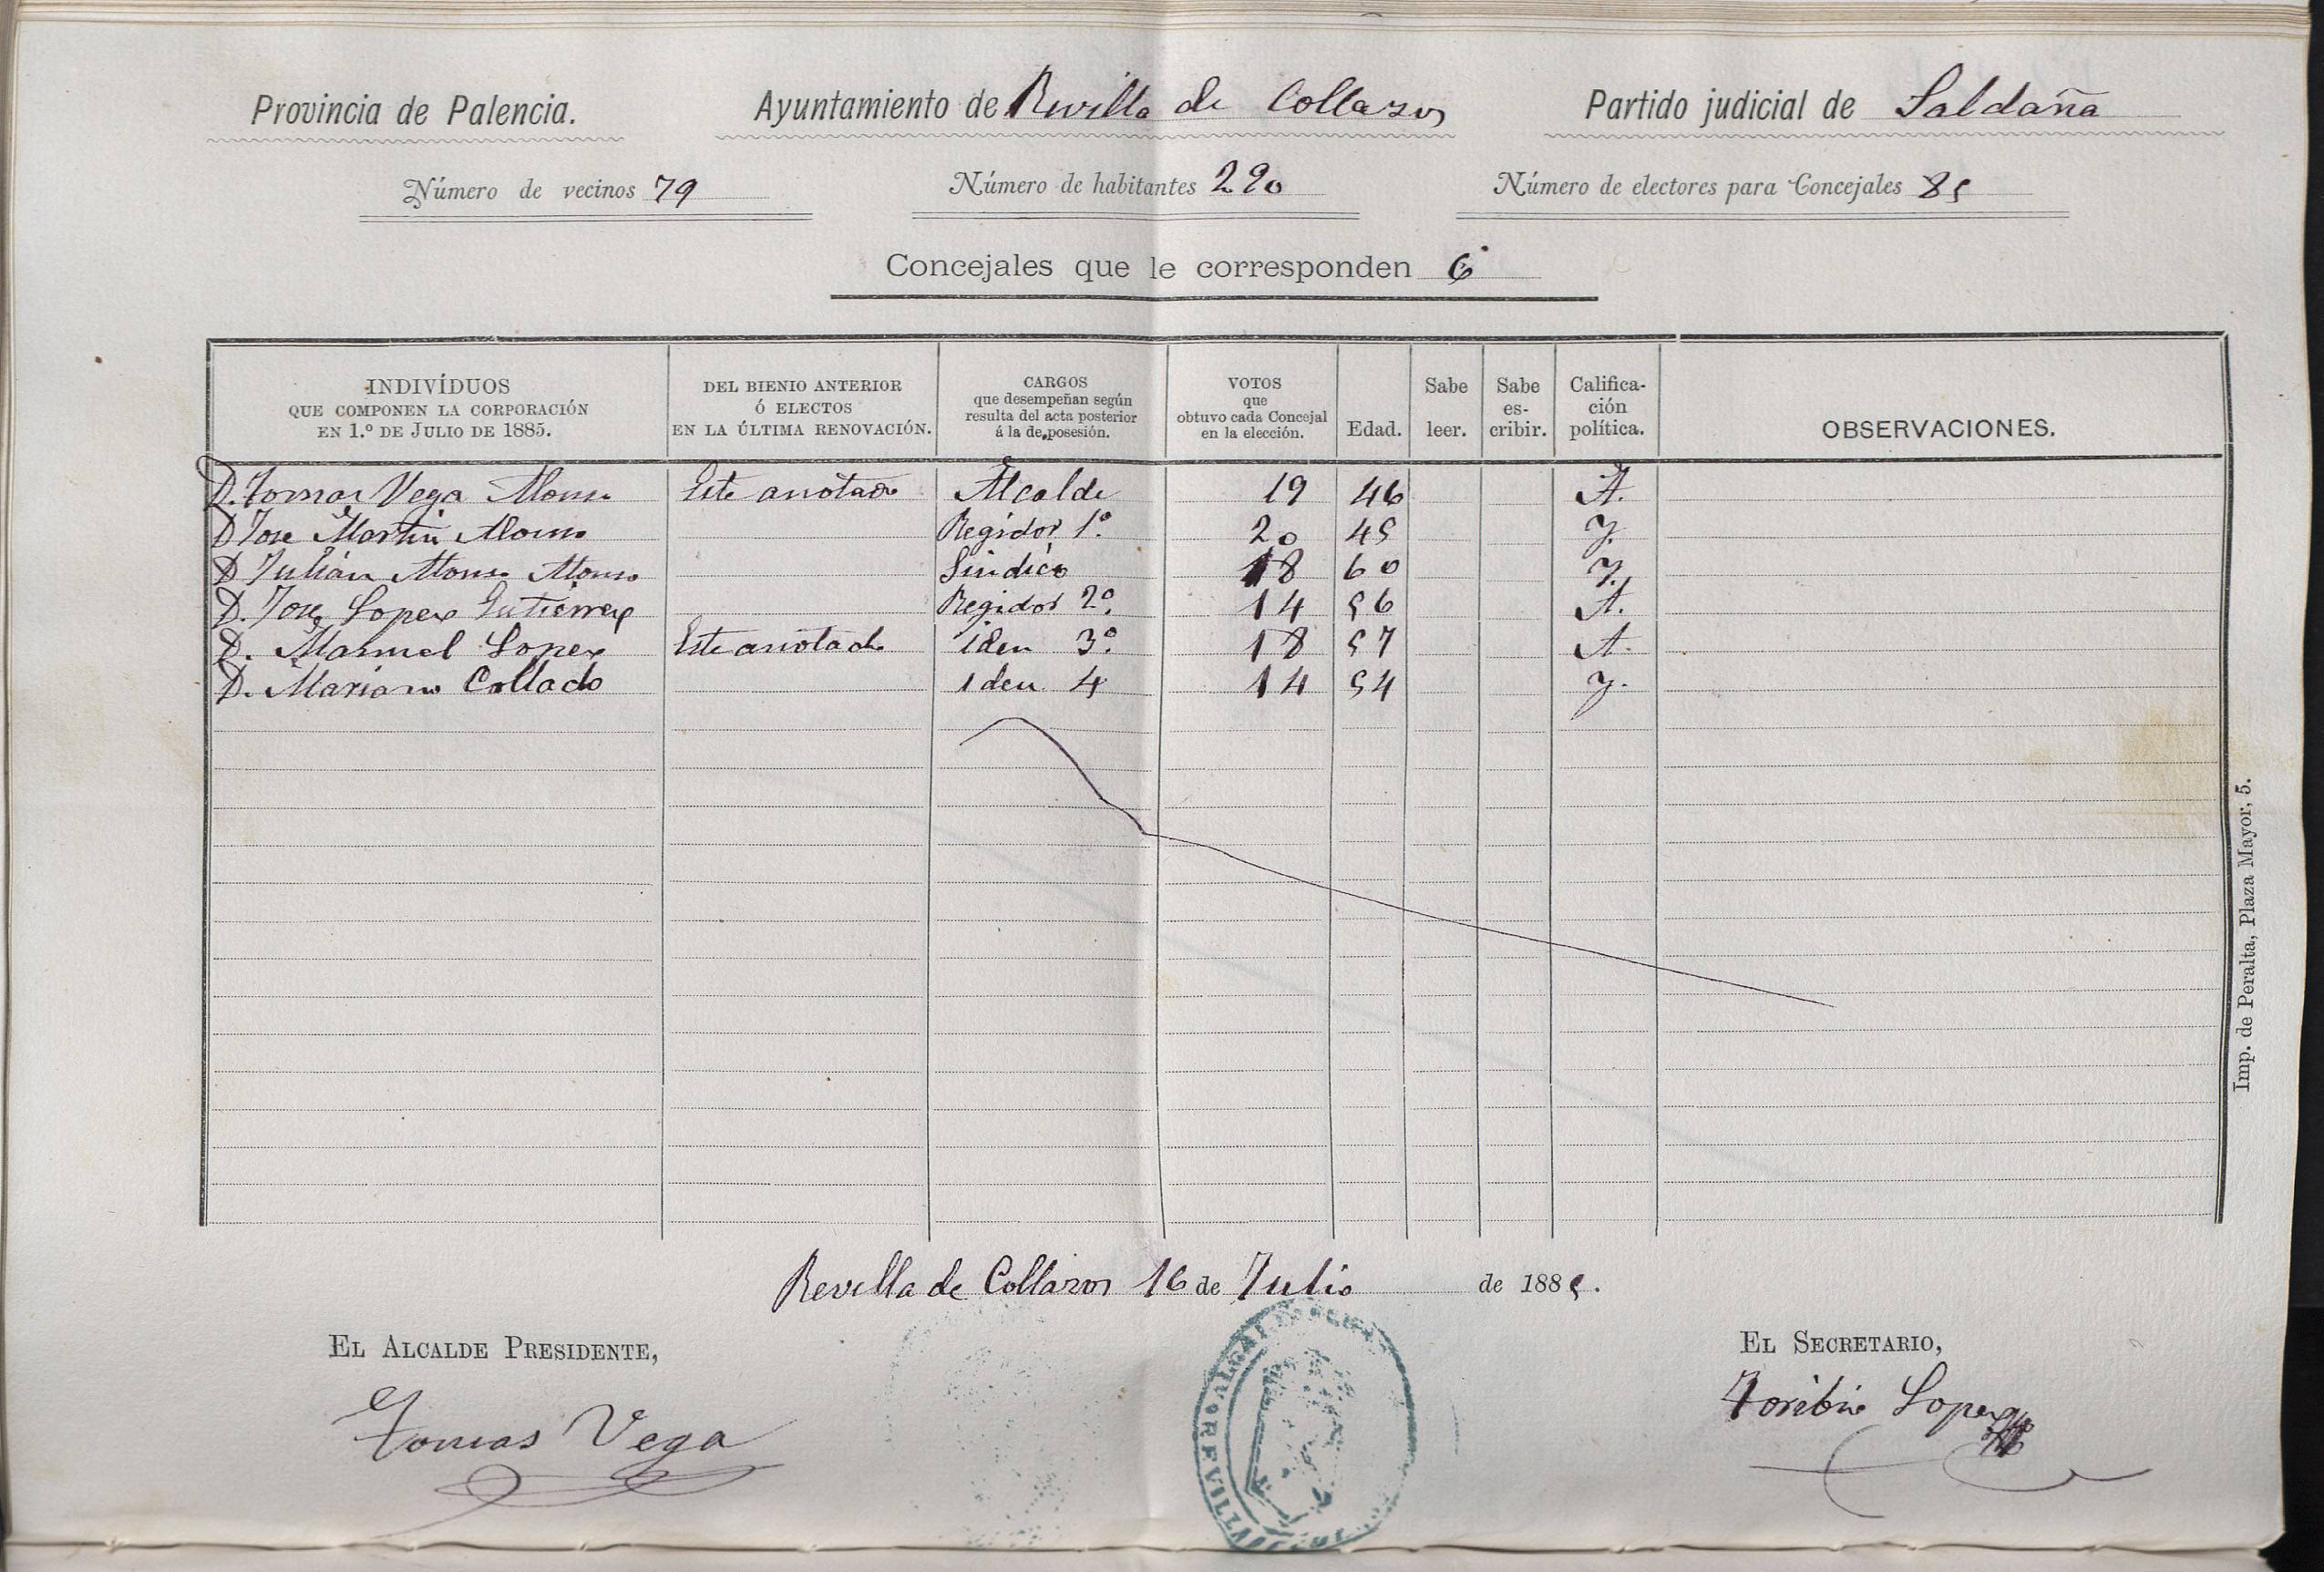 Provincia de Palencia. Ayuntamiento de Revilla de Collazos Partido judicial de Saldaña
Número de vecinos 79 Número de habitantes 290 Número de electores para Concejales 85
Concejales que le corresponden 6
INDIVÍDUOS QUE COMPONEN LA CORPORACIÓN EN 1.º DE JULIO DE 1885. DEL BIENIO ANTERIOR Ó ELECTOS EN LA ÚLTIMA RENOVACIÓN. CARGOS que desempeñan según resulta del acta posterior á la de posesión. VOTOS que obtuvo cada Concejal en la elección. Edad. Sabe leer. Sabe es-cribir. Califica-ción política. OBSERVACIONES.
D. Tomas Vega Alonso Este anotado Alcalde 19 46 A.
D Jose Martin Alonso Regidor 1º. 20 45 Y.
D Julián Alonso Alonso Sindico 18 60 Y.
D. Jose Lopez Gutierrez Regidor 2º. 14 56 A.
D. Manuel Lopez Este anotado iden 3º. 18 57 A.
D. Mariano Collado iden 4 14 54 Y.
Revilla de Collazos 16 de Julio de 1885.
EL ALCALDE PRESIDENTE, EL SECRETARIO,
Tomas Vega Toribio Lopez
Imp. de Peralta, Plaza Mayor, 5.